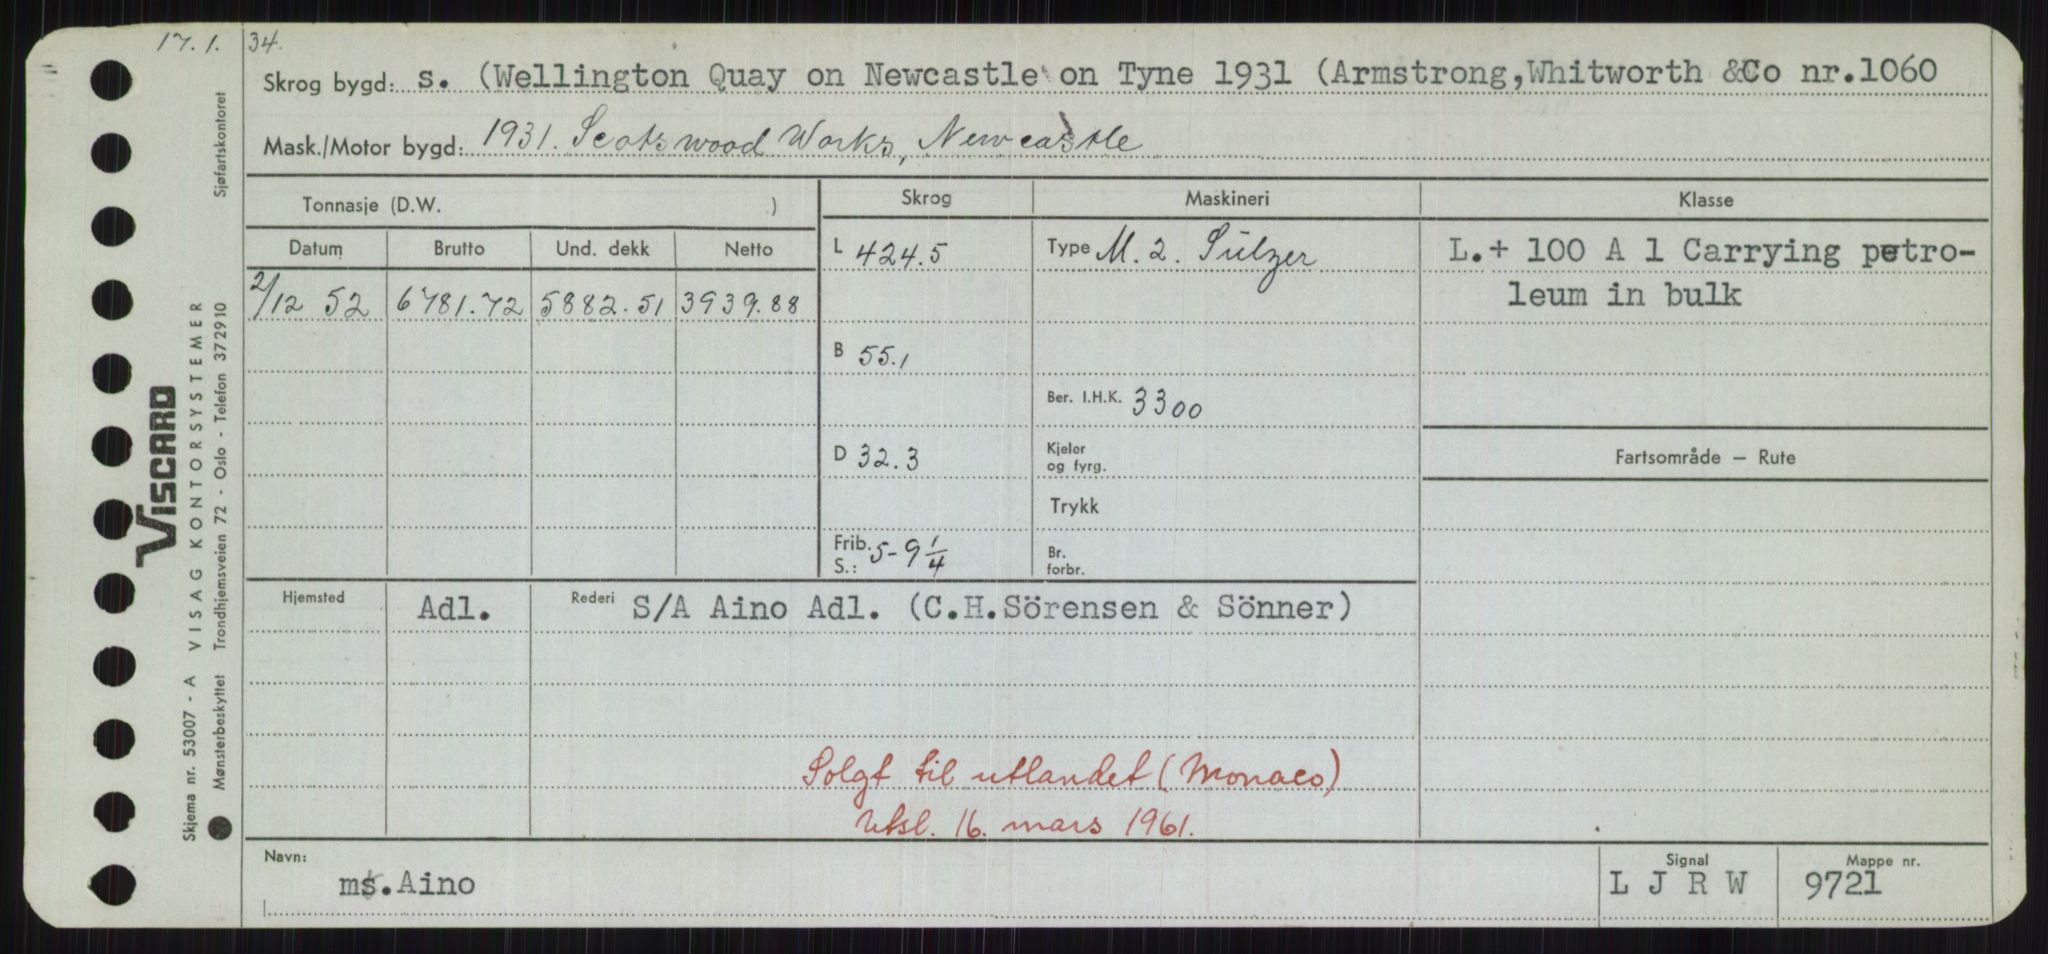 17. 1. 34.
Skrog bygd: s. (Wellington Quay on Newcastle on Tyne 1931 (Armstrong,Whitworth &Co nr.1060
Mask./Motor bygd: 1931. Scotswood Works, Newcastle
Tonnasje (D.W. )
Skrog Maskineri Klasse
Datum Brutto Und. dekk Netto
L 424.5 Type M. 2. Sulzer L.+ 100 A 1 Carrying petro-
leum in bulk
2/12 52 6781.72 5882.51 3939.88
B 55.1
Ber. I.H.K. 3300
D 32.3 Kjeler
og fyrg.
Fartsområde – Rute
Trykk
Frib.
S.: 5-9 1/4
Br.
forbr.
Hjemsted Adl. Rederi S/A Aino Adl. (C.H.Sörensen & Sönner)
Solgt til utlandet (Monaco)
Utsl. 16. mars 1961.
Navn: ms.Aino
Signal L J R W
Mappe nr. 9721
VISCARD
Skjema nr. 53007 - A VISAG KONTORSYSTEMER
Mønsterbeskyttet Trondhjemsveien 72 - Oslo - Telefon 372910 Sjøfartskontoret